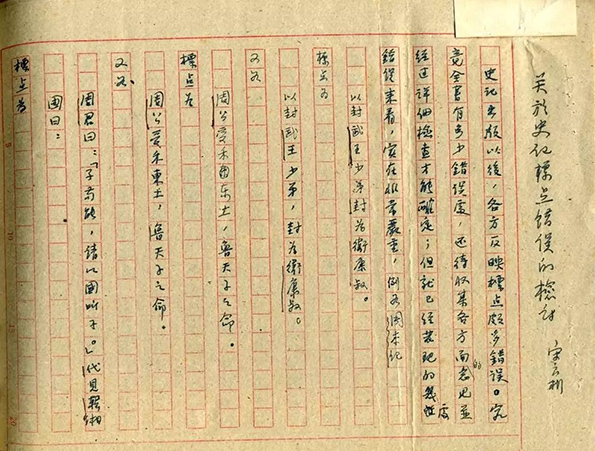 关於史记標点错误的檢討
宋云彬
史记出版以後，各方反映標点頗多错误。究
竟全書有多少错误處，还待收集各方面的意见並
经过详细檢查才能確定；但就已经發现的幾處
错误来看，实在非常嚴重，例如周本纪
以封武王少弟封为衛康叔。
標点为
以封武王少弟，封为衛康叔。
又如
周公受禾東土，魯天子之命。
標点为
周公受禾東土，魯天子之命。
又如
周君曰：「子苟能，请以國听子。」代見韓相
國曰：
標点为